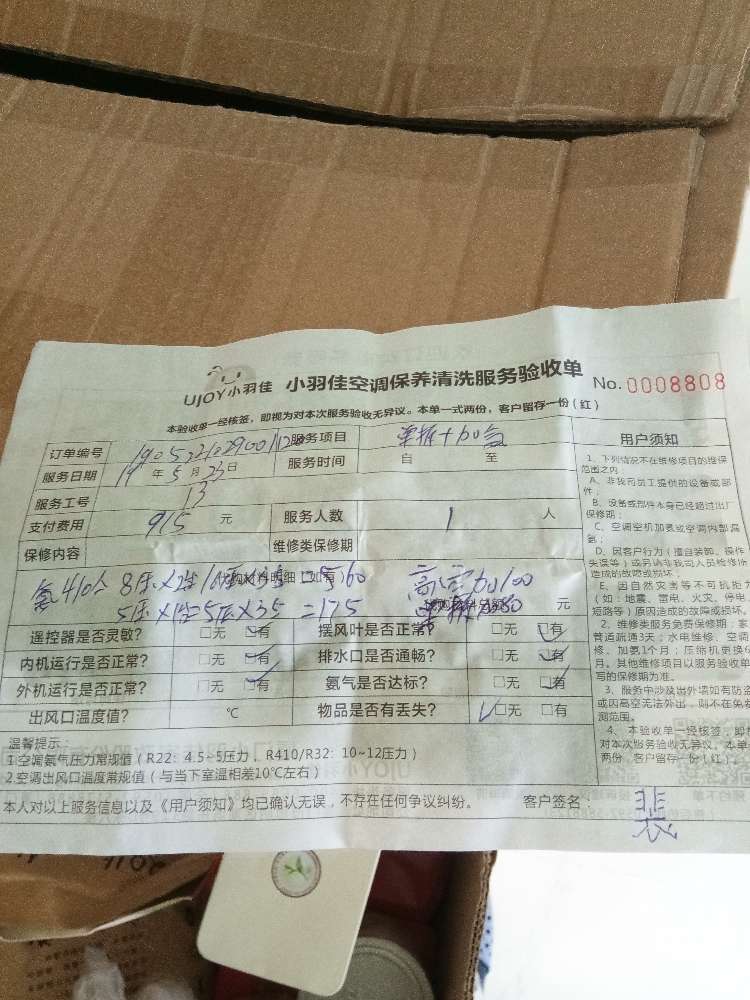 UJOY小羽佳 小羽佳空调保养清洗服务验收单 No.0008808
本验收单一经核签，即视为对本次服务验收无异议。本单一式两份，客户留存一份（红）
订单编号 服务项目 加氨
服务日期 19年5月23日 服务时间 自 至
服务工号 13
支付费用 915 元 服务人数 1 人
保修内容 维修类保修期
410
=560
5压X1台5压X35 =175 元
遥控器是否灵敏? □无 □有 摆风叶是否正常? □无 □有
内机运行是否正常? □无 □有 排水口是否通畅? □无 □有
外机运行是否正常? □无 □有 氨气是否达标? □无 □有
出风口温度值? ℃ 物品是否有丢失? □无 □有
温馨提示：
1.空调氨气压力常规值（R22：4.5~5压力，R410/R32：10~12压力）
2.空调出风口温度常规值（与当下室温相差10℃左右）
本人对以上服务信息以及《用户须知》均已确认无误，不存在任何争议纠纷。 客户签名：
用户须知
1、下列情况不在维修项目的维保
范围之内
A、非我司员工提供的设备或部
件；
B、设备或部件本身已经超过出厂
保修期；
C、空调空机加氨或空调内部漏
氨；
D、因客户行为（擅自装卸、操作
失误等）或另请非我司人员检修所
造成的故障或损坏；
E、因自然灾害等不可抗拒力
（如：地震、雷电、火灾、停电、
短路等）原因造成的故障或损坏。
2、维修类服务免费保修期：家
普通疏通3天；水电维修、空调
修、加氨1个月；压缩机更换6
月。其他维修项目以服务验收单
写的保修期为准。
3、服务中涉及出外墙如有防盗
或因高空无法外出，则不在免
测范围。
4、本验收单一经核签，即
对本次服务验收无异议。本单一
两份，客户留存一份（红）。